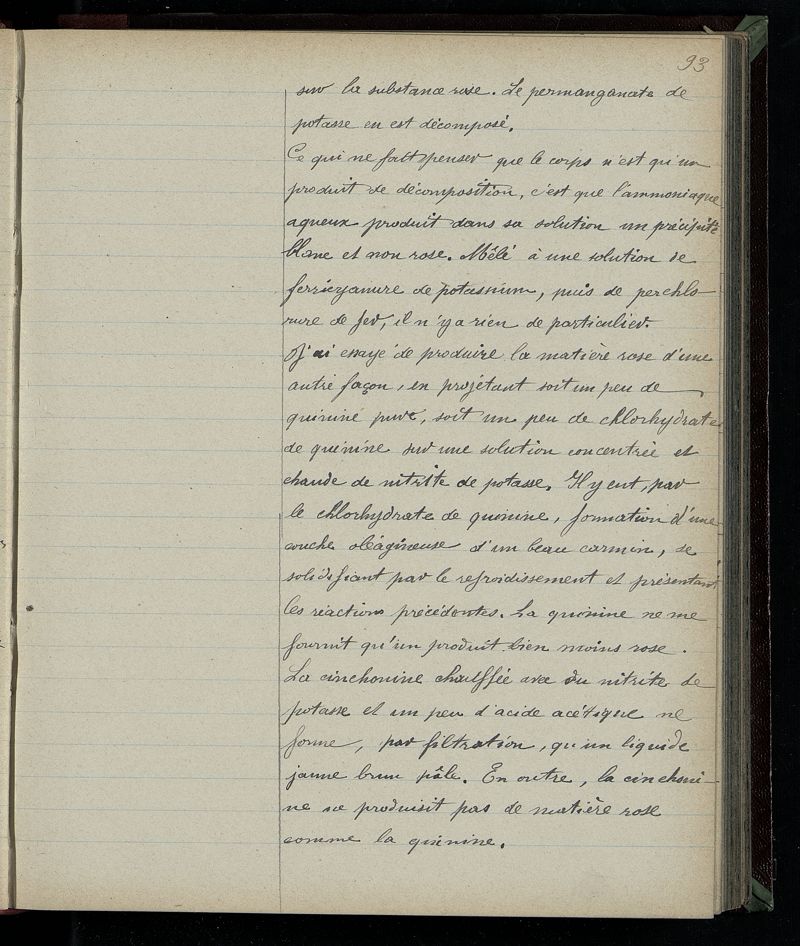 93
sur la substance rose. Le permanganate de
potasse en est décomposé.
Ce qui me fait penser que le corps n'est qu'un
produit de décomposition, c'est que l'ammoniaque
aqueux produit dans sa solution un précipité
blanc et non rose. Mêlé à une solution de
ferricyanure de potassium, puis de perchlo-
rure de fer, il n'y a rien de particulier.
J'ai essayé de produire la matière rose d'une
autre façon, en projetant soit un peu de
quinine pure, soit un peu de chlorhydrate
de quinine sur une solution concentrée et
chaude de nitrite de potasse. Il y eut, par
le chlorhydrate de quinine, formation d'une
couche oléagineuse d'un beau carmin, se
solidifiant par le refroidissement et présentant
les réactions précédentes. La quinine ne me
fournit qu'un produit bien moins rose.
La cinchonine chauffée avec du nitrite de
potasse et un peu d'acide acétique ne
forme, par filtration, qu'un liquide
jaune brun pâle. En outre, la cinchoni-
ne ne produisit pas de matière rose
comme la quinine.